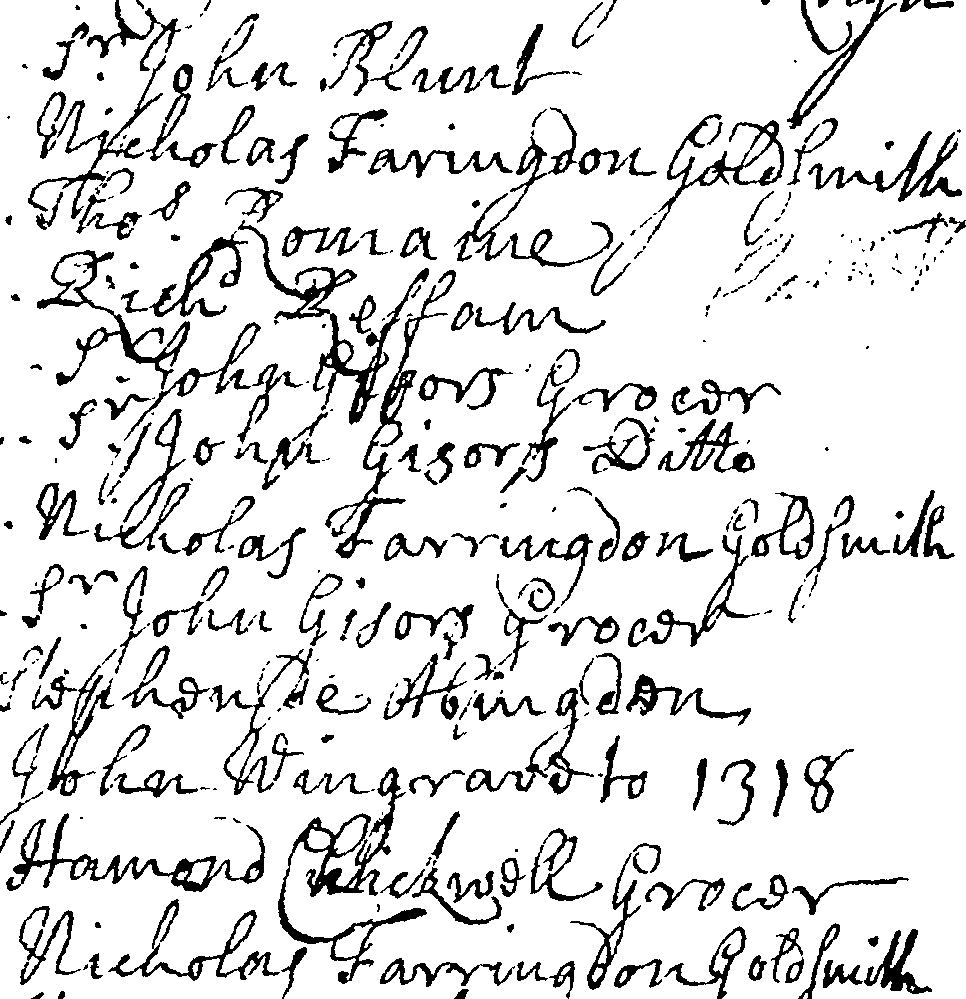 Sr John Blunt
Nicholas Faringdon Goldsmith
Thos. Romaine
Richd Reffam
Sr John Gissors Grocer
Sr John Gisors Ditto
Nicholas Farringdon Goldsmith
Sr John Gisors Grocer
Stephen De Abingden
John Wingrave to 1318
Hamond Chickwell Grocer
Nicholas Farringdon Goldsmith